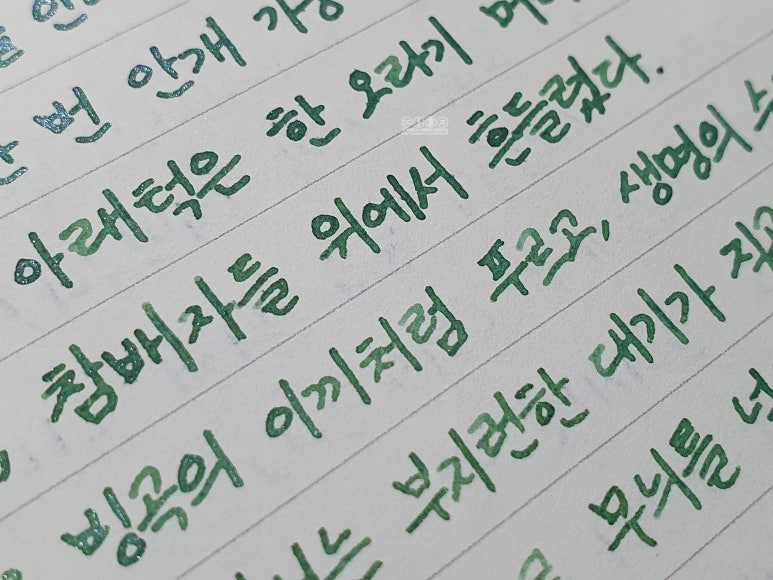 번 안개
아래턱은 한 오라기
참배자들 위에서 흔들렸다.
빙곡의 이끼처럼 푸르고, 생명의
부지런한 대기가
무늬를